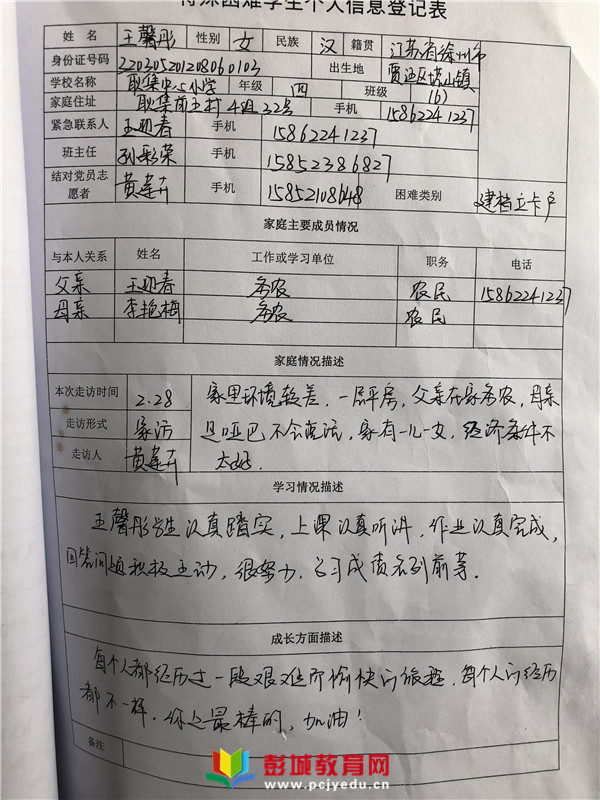 特殊困难学生个人信息登记表
姓 名 王馨彤 性别 女 民族 汉 籍贯 江苏省徐州市
身份证号码 220305201208060103 出生地 贾汪区塔山镇
学校名称 耿集中心小学 年级 四 班级 (6)
家庭住址 耿集前王村4组32号 手机 15862241237
紧急联系人 王迎春 手机 15862241237
班主任 孙彩荣 手机 15852386827
结对党员志愿者 黄建卉 手机 15852108648 困难类别 建档立卡户
家庭主要成员情况
与本人关系 姓名 工作或学习单位 职务 电话
父亲 王迎春 务农 农民 15862241237
母亲 李艳梅 务农 农民
家庭情况描述
本次走访时间 2.28
走访形式 家访
走访人 黄建卉
家里环境较差,一层平房,父亲在家务农,母亲
是哑巴不会说话,家有一儿一女,经济条件不
太好.
学习情况描述
王馨彤学生认真踏实,上课认真听讲,作业认真完成,
回答问题积极主动,很努力,学习成绩名列前茅。
成长方面描述
每个人都经历过一段艰难而愉快的旅程,每个人的经历
都不一样.你是最棒的,加油!
备注
彭城教育网
www.pcjyedu.cn